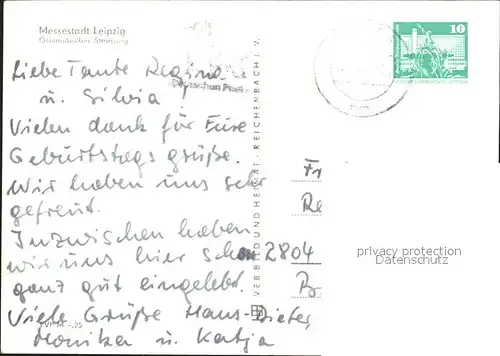 Messestadt Leipzig
Grimmaischer Steinweg
Liebe Tante Regina
u. Silvia!
Vielen dank für Eure
Geburtstags grüße.
Wir haben uns sehr
gefreut.
Inzwischen haben
wir uns hier schon
ganz gut eingelebt.
Viele Grüße Hans-Dieter,
Monika u. Katja
EVP M -,25
VEB BILD UND HEIMAT · REICHENBACH I. V.
Deutschen Post
10
Fr
Re
2804
B
privacy protection
Datenschutz